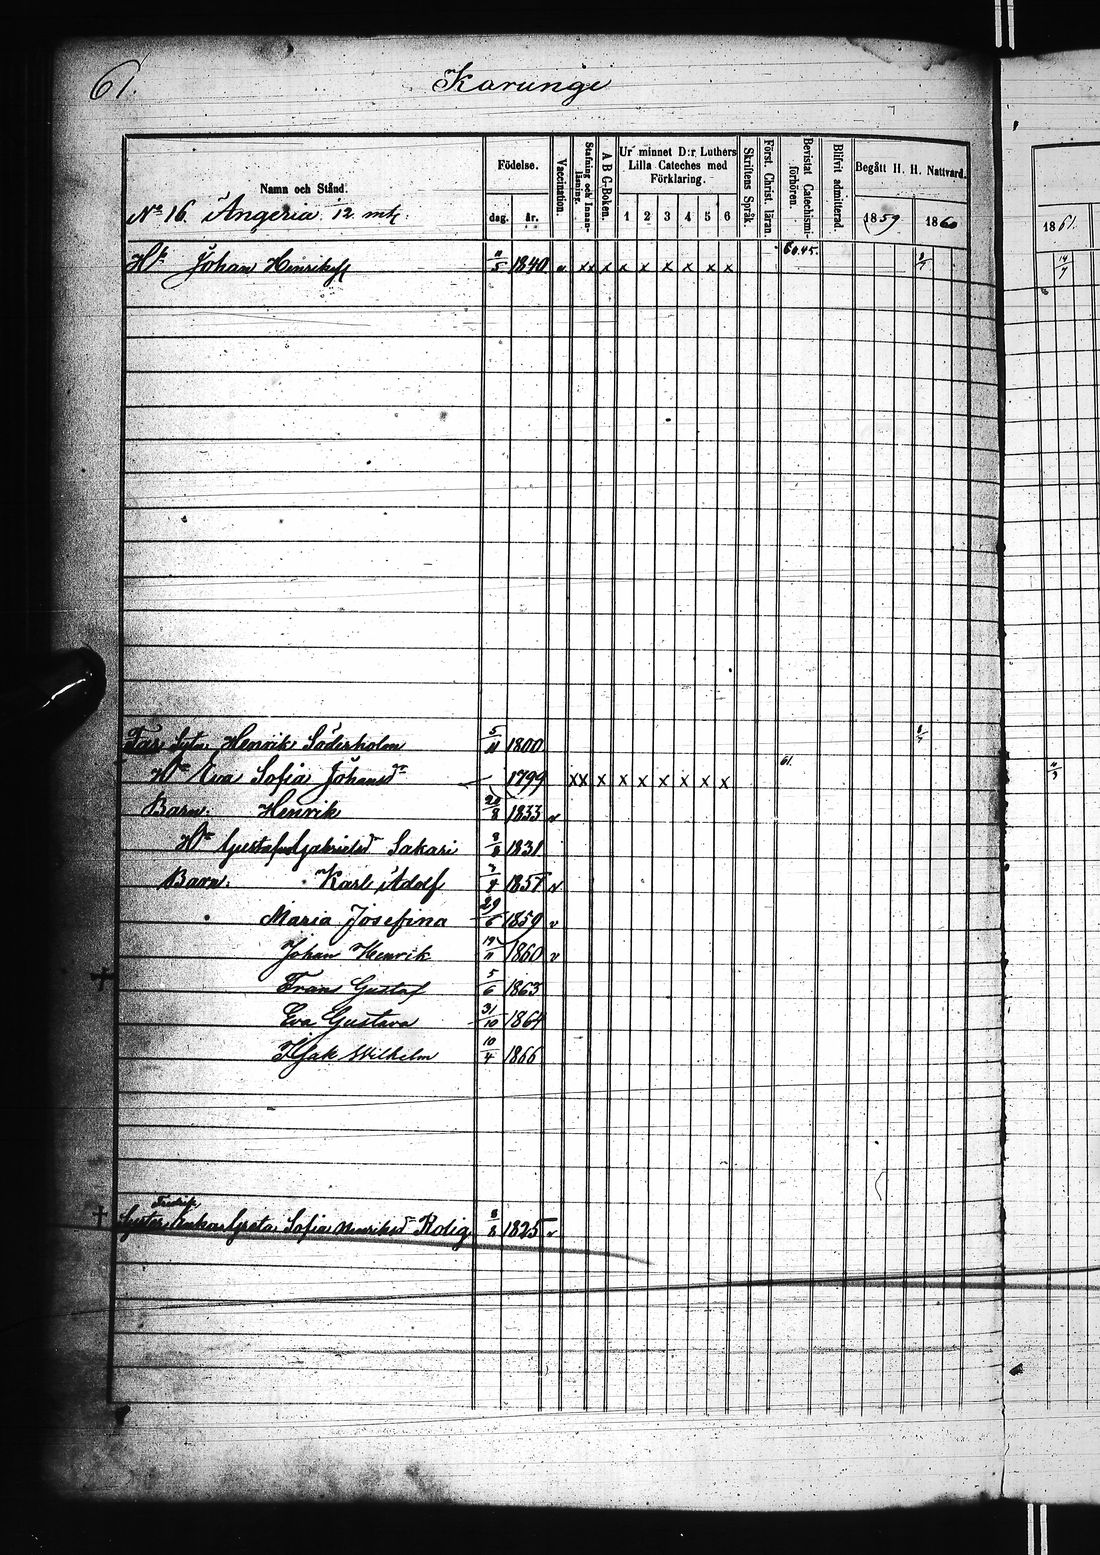 61.
Karungi
Namn och Stånd.
Födelse.
dag. år.
Vaccination.
Stafning och Innan-läsning.
A B C-Boken.
Ur minnet D:r Luthers Lilla Cateches med Förklaring.
1 2 3 4 5 6
Skriftens Språk.
Först. Christ. läran.
Bevistat Catechismi-förhören.
Blifvit admitterad.
Begått H. H. Nattvard.
1859 1860
1861.
No 16. Angeria 12. mtl.
60.45.
Johan Henrikss 11/5 1840 v xx x x x x x x x
14/7
Far Henrik Söderholm 5/11 1800
61.
Hu Eva Sofia Johansdr 1799 xx x x x x x x x
Barn: Henrik 8 1833 v
Hu Gustafva Gabrielsdr Sakari 1831
Barn: Karl Adolf 4 1857 v
Maria Josefina 29/6 1859 v
Johan Henrik 11 1860 v
† Frans Gustaf 5/6 1863
Eva Gustava 31/10 1864
Isak Wilhelm 10/4 1866
† Syster Enkan Greta Sofia Henriksdr Rolig 8/8 1825 v